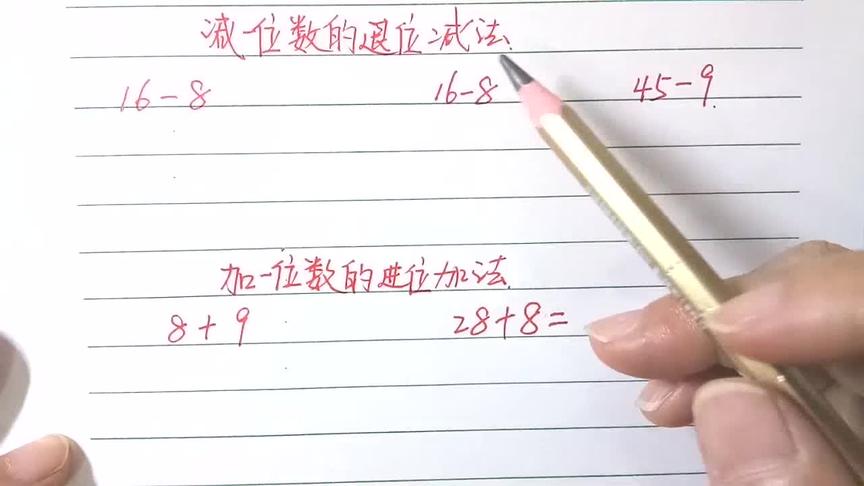 减一位数的退位减法.
16-8 16-8 45-9.
加一位数的进位加法.
8+9 28+8=